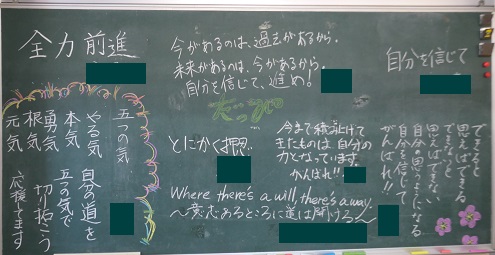 全力前進
今があるのは、過去があるから。
未来があるのは、今があるから。
自分を信じて、進め!
自分を信じて
五つの気
やる気
本気
勇気
根気
元気
自分の道を
五つの気で
切り拓こう
応援してます
とにかく
今まで続けて
きたものは自分の
力となっています。
がんばれ!!
Where there's a will, there's a way.
〜意志あるところに道は開ける〜
できると
思えばできる
できないと
思えばできない
自分の思うようになる
自分を信じて
がんばれ!!